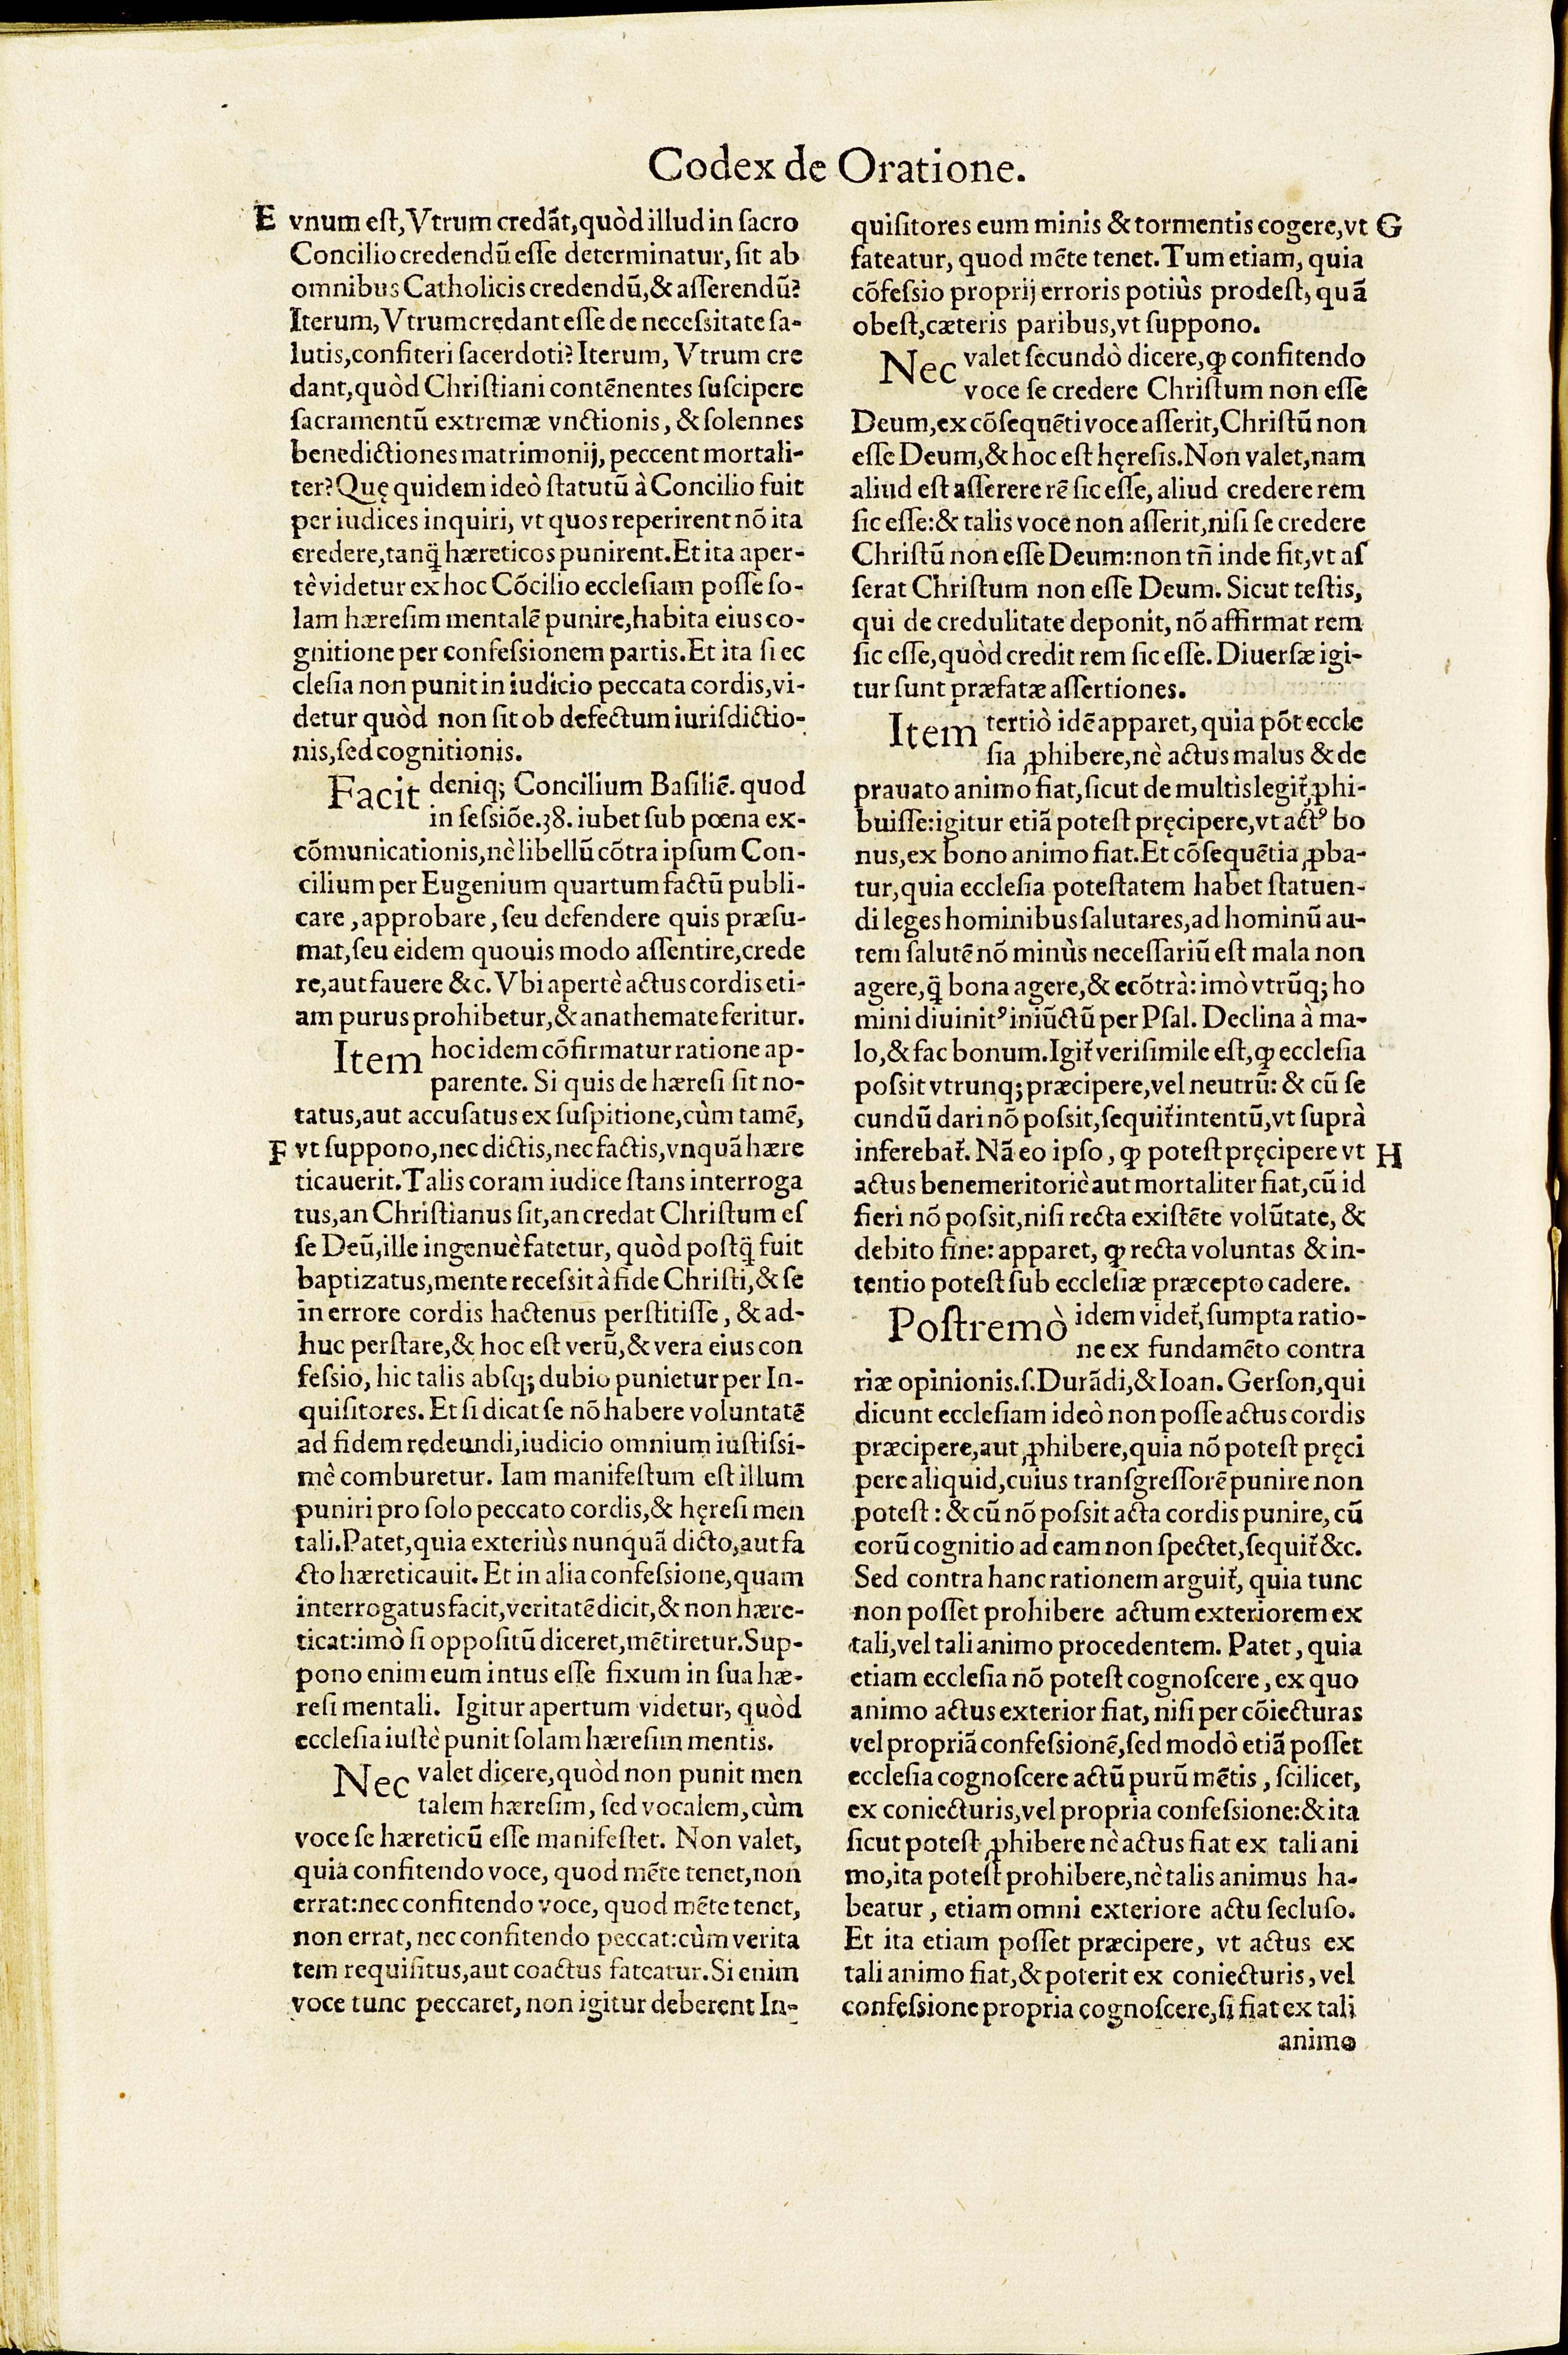 Codex de Oratione.
E vnum est, Vtrum credãt, quòd illud in sacro
Concilio credendũ esse determinatur, sit ab
omnibus Catholicis credendũ, & asserendũ?
Iterum, Vtrum credant esse de necessitate sa-
lutis, confiteri sacerdoti? Iterum, Vtrum cre
dant, quòd Christiani contẽnentes suscipere
sacramentũ extremæ vnctionis, & solennes
benedictiones matrimonij, peccent mortali-
ter? Quę quidem ideò statutũ à Concilio fuit
per iudices inquiri, vt quos reperirent nõ ita
credere, tanq̃ hæreticos punirent. Et ita aper-
tè videtur ex hoc Cõcilio ecclesiam posse so-
lam hæresim mentalẽ punire, habita eius co-
gnitione per confessionem partis. Et ita si ec
clesia non punit in iudicio peccata cordis, vi-
detur quòd non sit ob defectum iurisdictio-
nis, sed cognitionis.
Facit deniq; Concilium Basiliẽ. quod
in sessiõe. 38. iubet sub pœna ex-
cõmunicationis, nè libellũ cõtra ipsum Con-
cilium per Eugenium quartum factũ publi-
care, approbare, seu defendere quis præsu-
mat, seu eidem quouis modo assentire, crede
re, aut fauere &c. Vbi apertè actus cordis eti-
am purus prohibetur, & anathemate feritur.
Item hoc idem cõfirmatur ratione ap-
parente. Si quis de hæresi sit no-
tatus, aut accusatus ex suspitione, cùm tamẽ,
F vt suppono, nec dictis, nec factis, vnquã hære
ticauerit. Talis coram iudice stans interroga
tus, an Christianus sit, an credat Christum es
se Deũ, ille ingenuè fatetur, quòd postq̃ fuit
baptizatus, mente recessit à fide Christi, & se
in errore cordis hactenus perstitisse, & ad-
huc perstare, & hoc est verũ, & vera eius con
fessio, hic talis absq; dubio punietur per In-
quisitores. Et si dicat se nõ habere voluntatẽ
ad fidem redeundi, iudicio omnium iustissi-
mè comburetur. Iam manifestum est illum
puniri pro solo peccato cordis, & hęresi men
tali. Patet, quia exteriùs nunquã dicto, aut fa
cto hæreticauit. Et in alia confessione, quam
interrogatus facit, veritatẽ dicit, & non hære-
ticat: imò si oppositũ diceret, mẽtiretur. Sup-
pono enim eum intus esse fixum in sua hæ-
resi mentali. Igitur apertum videtur, quòd
ecclesia iustè punit solam hæresim mentis.
Nec valet dicere, quòd non punit men
talem hæresim, sed vocalem, cùm
voce se hæreticũ esse manifestet. Non valet,
quia confitendo voce, quod mẽte tenet, non
errat: nec confitendo voce, quod mẽte tenet,
non errat, nec confitendo peccat: cùm verita
tem requisitus, aut coactus fateatur. Si enim
voce tunc peccaret, non igitur deberent In-
quisitores eum minis & tormentis cogere, vt G
fateatur, quod mẽte tenet. Tum etiam, quia
cõfessio proprij erroris potiùs prodest, quã
obest, cæteris paribus, vt suppono.
Nec valet secundò dicere, ꝙ confitendo
voce se credere Christum non esse
Deum, ex cõsequẽti voce asserit, Christũ non
esse Deum, & hoc est hęresis. Non valet, nam
aliud est asserere rẽ sic esse, aliud credere rem
sic esse: & talis voce non asserit, nisi se credere
Christũ non esse Deum: non tñ inde fit, vt as
serat Christum non esse Deum. Sicut testis,
qui de credulitate deponit, nõ affirmat rem
sic esse, quòd credit rem sic esse. Diuersæ igi-
tur sunt præfatæ assertiones.
Item tertiò idẽ apparet, quia põt eccle
sia ꝓhibere, nè actus malus & de
prauato animo fiat, sicut de multis legit̃, ꝓhi-
buisse: igitur etiã potest pręcipere, vt actꝰ bo
nus, ex bono animo fiat. Et cõsequẽtia ꝓba-
tur, quia ecclesia potestatem habet statuen-
di leges hominibus salutares, ad hominũ au-
tem salutẽ nõ minùs necessariũ est mala non
agere, q̃ bona agere, & ecõtrà: imò vtrũq; ho
mini diuinitꝰ iniũctũ per Psal. Declina à ma-
lo, & fac bonum. Igit̃ verisimile est, ꝙ ecclesia
possit vtrunq; præcipere, vel neutrũ: & cũ se
cundũ dari nõ possit, sequit̃ intentũ, vt suprà
inferebat̃. Nã eo ipso, ꝙ potest pręcipere vt H
actus bene meritoriè aut mortaliter fiat, cũ id
fieri nõ possit, nisi recta existẽte volũtate, &
debito fine: apparet, ꝙ recta voluntas & in-
tentio potest sub ecclesiæ præcepto cadere.
Postremò idem videt̃, sumpta ratio-
ne ex fundamẽto contra
riæ opinionis. s. Durãdi, & Ioan. Gerson, qui
dicunt ecclesiam ideò non posse actus cordis
præcipere, aut ꝓhibere, quia nõ potest pręci
pere aliquid, cuius transgressorẽ punire non
potest: & cũ nõ possit acta cordis punire, cũ
eorũ cognitio ad eam non spectet, sequit̃ &c.
Sed contra hanc rationem arguit̃, quia tunc
non posset prohibere actum exteriorem ex
tali, vel tali animo procedentem. Patet, quia
etiam ecclesia nõ potest cognoscere, ex quo
animo actus exterior fiat, nisi per cõiecturas
vel propriã confessionẽ, sed modò etiã posset
ecclesia cognoscere actũ purũ mẽtis, scilicet,
ex coniecturis, vel propria confessione: & ita
sicut potest ꝓhibere nè actus fiat ex tali ani
mo, ita potest prohibere, nè talis animus ha-
beatur, etiam omni exteriore actu secluso.
Et ita etiam posset præcipere, vt actus ex
tali animo fiat, & poterit ex coniecturis, vel
confessione propria cognoscere, si fiat ex tali
animo